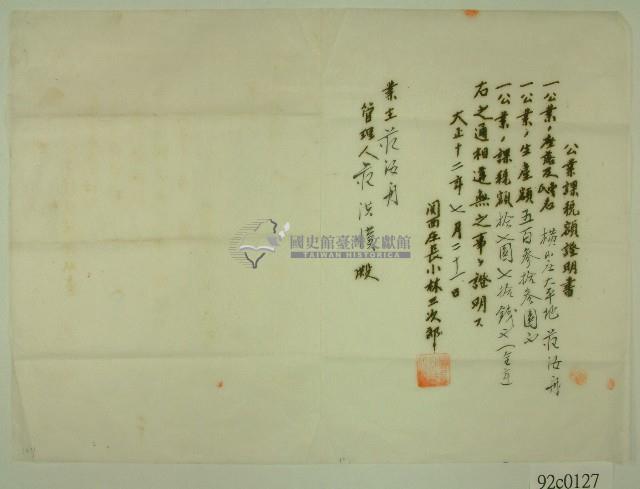 公業課税額證明書
一公業ノ座落及姓名 橫山庄大平地 范汝舟
一公業ノ生產額五百參拾參圓也
一公業ノ課税額拾八圓七拾錢也
右之通相違無之事ヲ證明ス
大正十二年七月二十一日
関西庄長小林三次郎
業主 范汝舟
管理人 范洪 殿
國史館臺灣文獻館
TAIWAN HISTORICA
92c0127